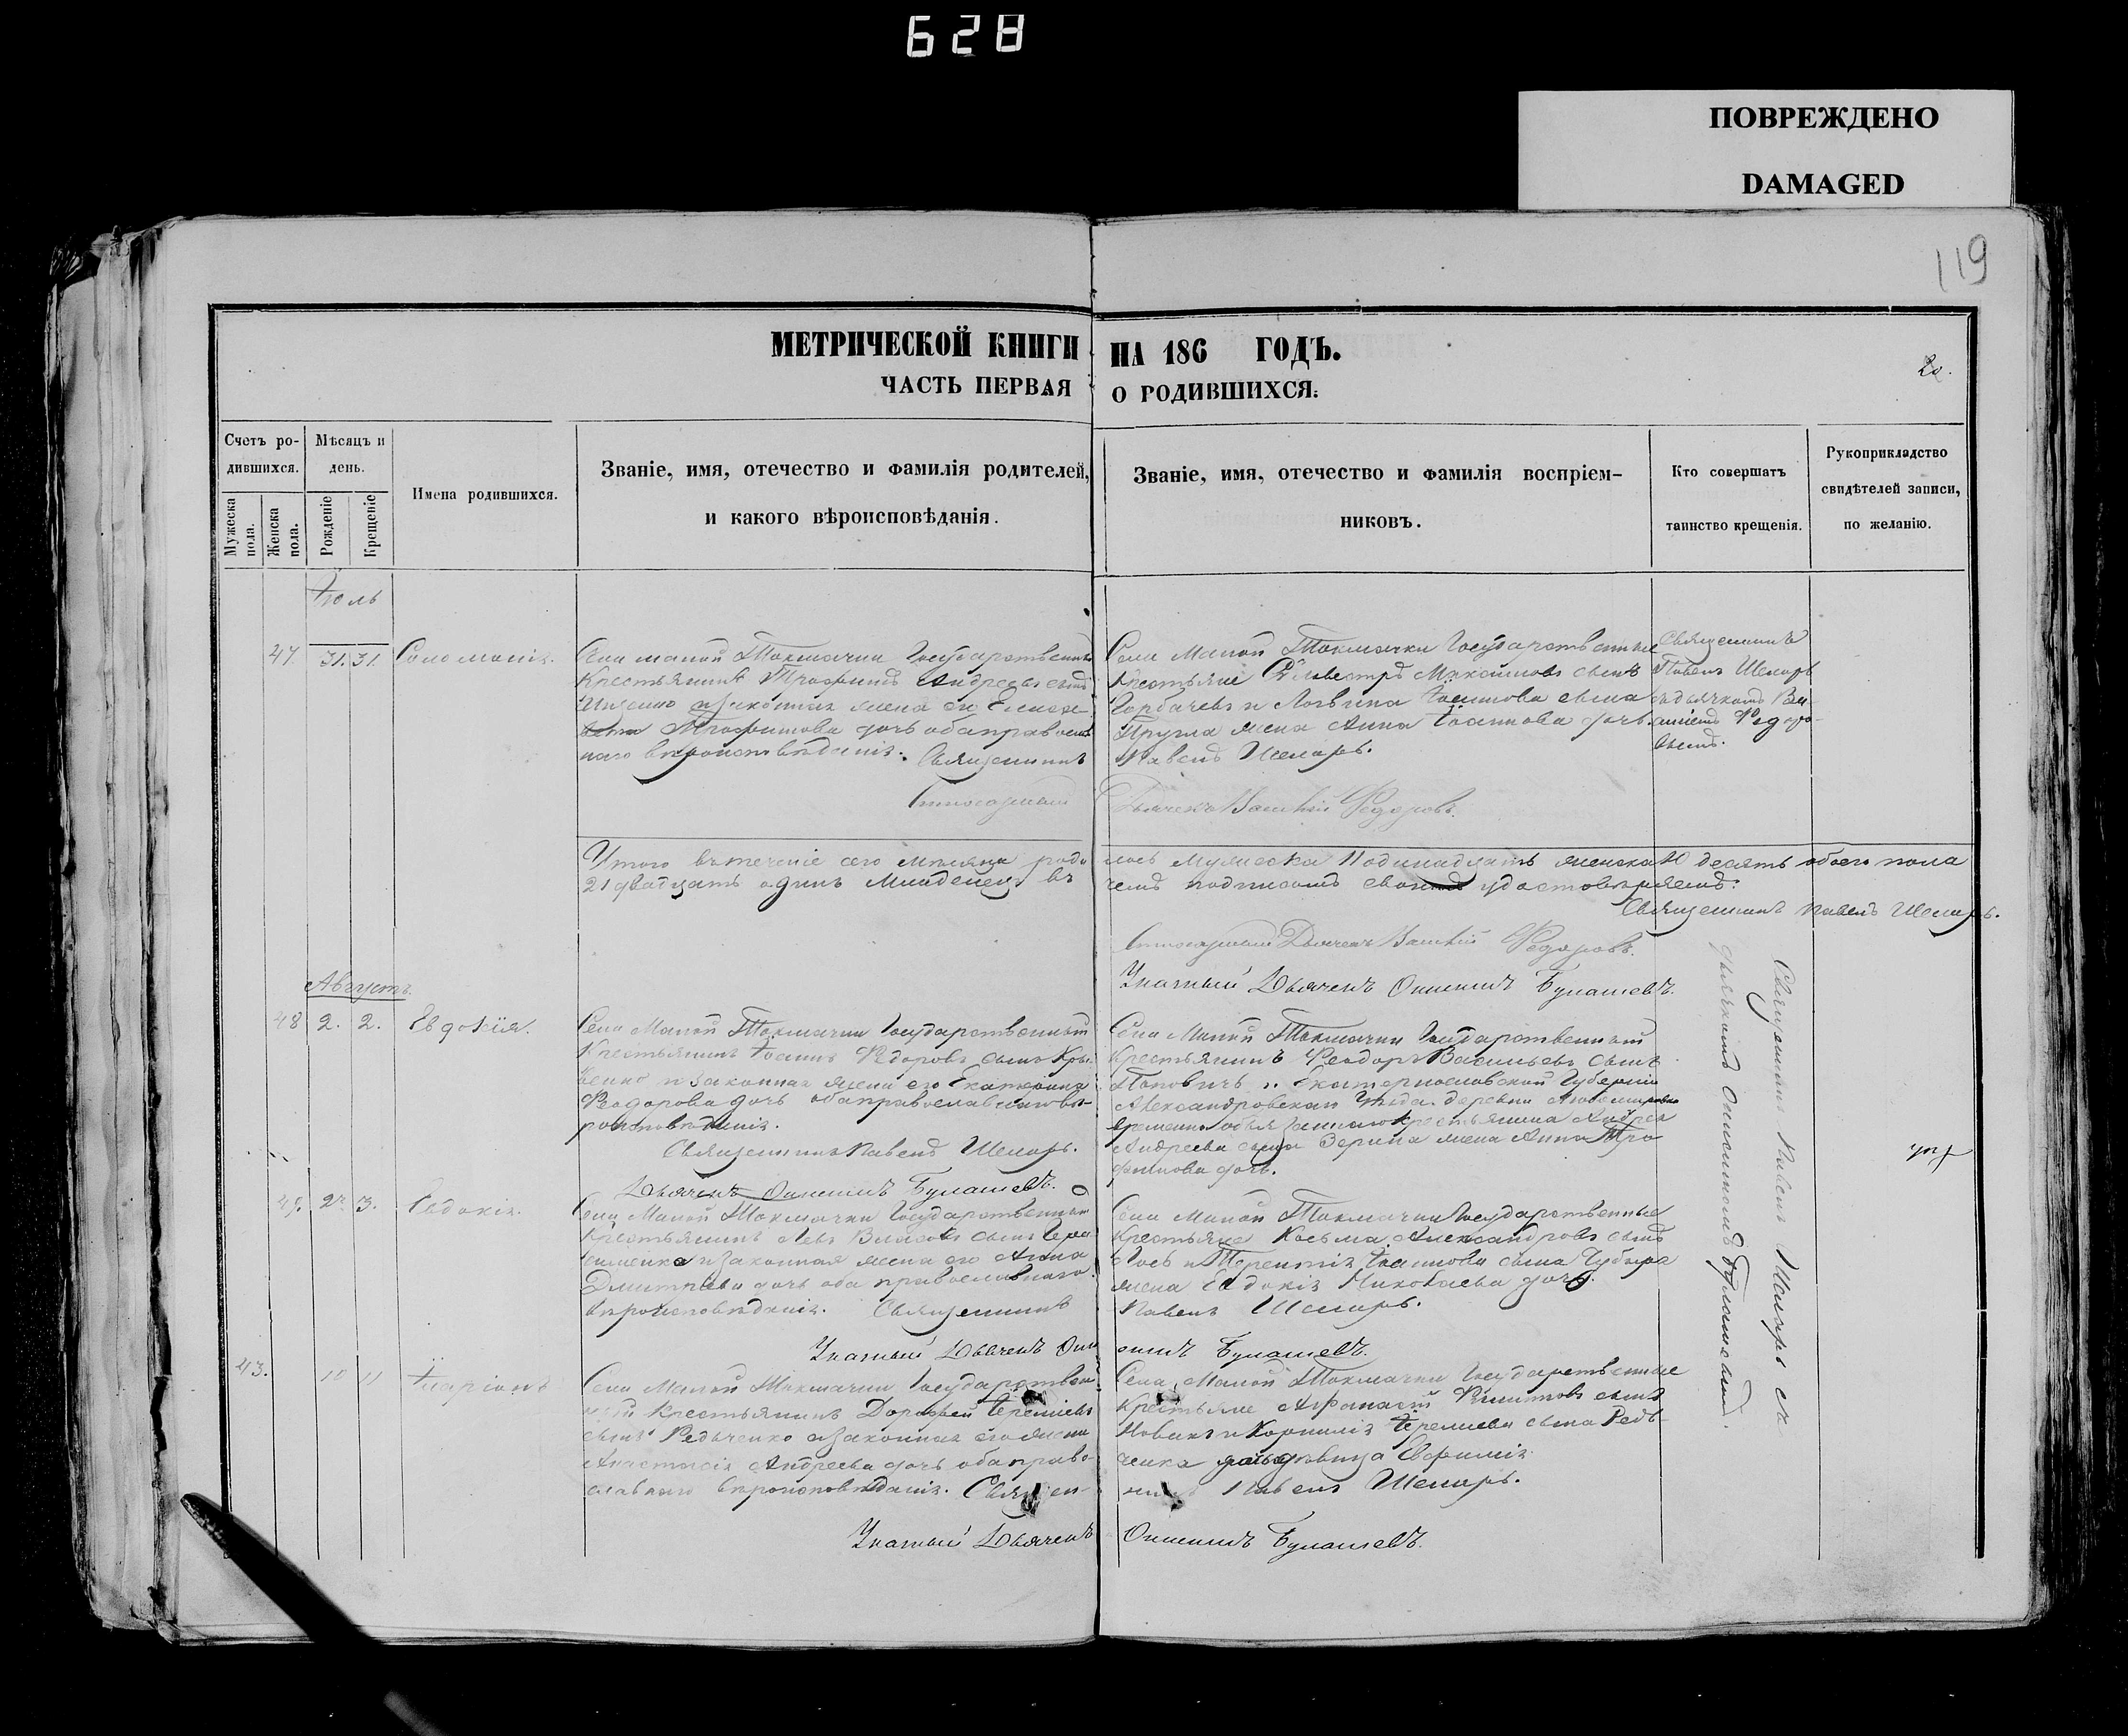 628
ПОВРЕЖДЕНО
DAMAGED
119
МЕТРИЧЕСКОЙ КНИГИ НА 186 ГОДЪ.
20.
ЧАСТЬ ПЕРВАЯ О РОДИВШИХСЯ.
Счетъ родившихся.
Мужеска пола.
Женска пола.
Мѣсяцъ и день.
Рожденіе
Крещеніе
Имена родившихся.
Званіе, имя, отечество и фамилія родителей,
и какого вѣроисповѣданія.
Званіе, имя, отечество и фамилія воспріем-
никовъ.
Кто совершатъ
таинство крещенія.
Рукоприкладство
свидѣтелей записи,
по желанію.
Іюль
47. 31. 31. Соломонія.
Села малой Токмачки Государственный
Крестьянинъ Трофимъ Андреевъ сынъ
и законная жена его
Трофимова дочь оба православ
наго вѣроисповѣданія. Священникъ
Села Малой Токмачки Государственные
Крестьяне Сильвестръ сынъ
Горбачевъ и Логвина Іоаннова сына
жена Анна Іоаннова дочь.
Павелъ Шемаръ.
Священникъ
Павелъ Шемаръ
съ дьячкомъ Ва
силіемъ Федоро-
вымъ.
Дьячекъ Василій Федоровъ.
Итого въ теченіе сего мѣсяца роди лось мужеска 11 одинадцать женска 10 десять обоего пола
21 двадцать одинъ младенецъ въ чемъ подписомъ своимъ удостовѣряемъ:
Священникъ Павелъ Шемаръ.
Дьячекъ Василій Федоровъ.
Указный Дьячекъ Онисимъ Булашевъ.
Августъ.
48 2. 2. Евдокія.
Села Малой Токмачки Государственный
Крестьянинъ Іоаннъ Федоровъ сынъ Кри
венко и законная жена его Екатерина
Феодорова дочь оба православнаго вѣ-
роисповѣданія.
Священникъ Павелъ Шемаръ.
Дьячекъ Онисимъ Булашевъ.
Села Малой Токмачки Государственный
Крестьянинъ Феодоръ Васильевъ сынъ
Поповичъ и Екатеринославской Губерніи
Александровскаго Уѣзда деревни
временно обязаннаго крестьянина Андрея
Андреева сына жена Анна Тро
фимова дочь.
Священникъ Павелъ Шемаръ съ
дьячкомъ Онисимомъ Булашевымъ.
49. 2. 3. Евдокія.
Села Малой Токмачки Государственный
Крестьянинъ Левъ Власовъ сынъ Гера
сименко и законная жена его Анна
Дмитріева дочь оба православнаго
вѣроисповѣданія. Священникъ
Села Малой Токмачки Государственные
Крестьяне Косьма Александровъ сынъ
Лось и Терентія Іоаннова сына Губаря
жена Евдокія Николаева дочь.
Павелъ Шемаръ.
Указный Дьячекъ Они симъ Булашевъ.
43. 10 11 Иларіонъ
Села Малой Токмачки Государствен
ный Крестьянинъ Дорофей Іереміевъ
сынъ Редьченко и законная его жена
Анастасія Андреева дочь оба право-
славнаго вѣроисповѣданія. Священ-
Села Малой Токмачки Государственные
Крестьяне Афанасій Филиповъ сынъ
Новакъ и Корнилія Іереміева сына Редь-
ченка Евфимія
никъ Павелъ Шемаръ.
Указный Дьячекъ Онисимъ Булашевъ.